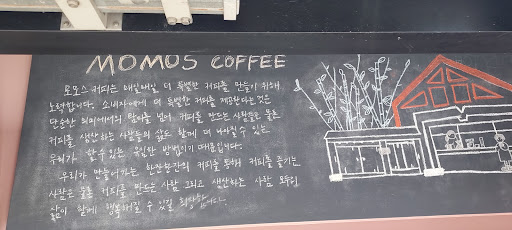 MOMOS COFFEE
모모스 커피는 매일매일 더 특별한 커피를 만들기 위해
노력합니다. 소비자에게 더 특별한 커피를 제공한다는것은
단순한 의미에서의 맛을 넘어 커피를 만드는 사람들은 물론
커피를 생산하는 사람들의 삶도 함께 더 나아질 수 있는
우리가 할 수 있는 유일한 방법이기 때문입니다.
우리가 만들어가는 한잔한잔의 커피를 통해 커피를 즐기는
사람은 물론 커피를 만드는 사람 그리고 생산하는 사람 모두의
삶이 함께 행복해질 수 있길 희망합니다.